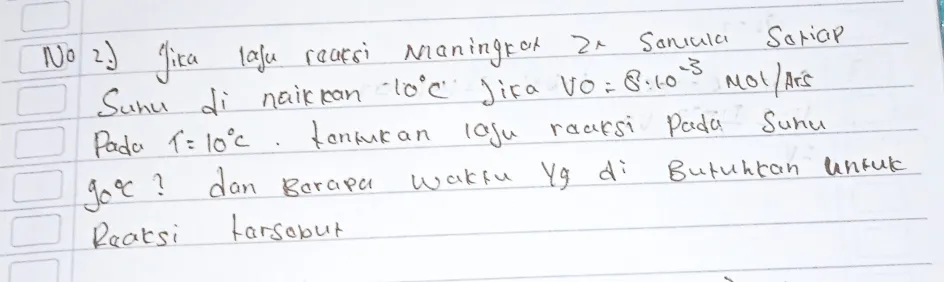 No 2) Jika laju reaksi Maningkat 2x Samula Satiap
Suhu di naikkan 10°C. Jika VO = 8.10⁻³ Mol/
Pada T = 10°C. tantukan laju raaksi Pada Suhu
90°C? dan Barapa waktu Yg di Butuhkan untuk
Raaksi tarsabut